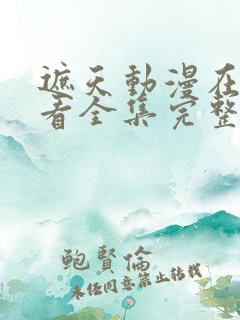 遮天動漫在
看全集完整
鲍賢倫
未任同意禁止转载